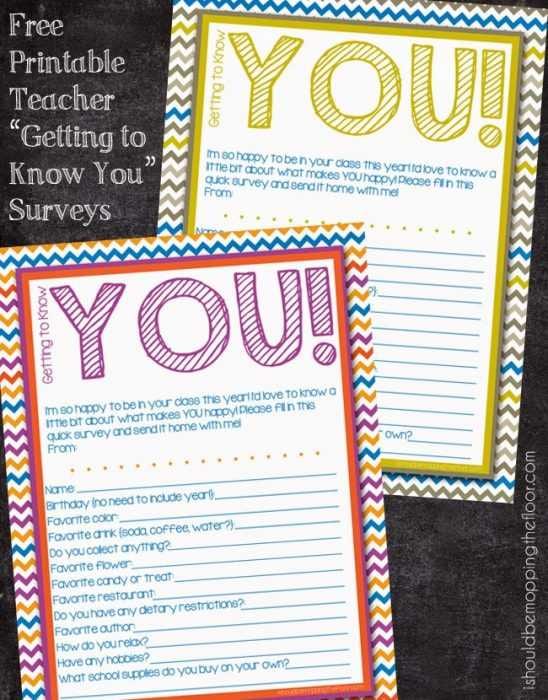 Free
Printable
Teacher
“Getting to
Know You”
Surveys
Getting to Know
YOU!
I'm so happy to be in your class this year! I'd love to know a
little bit about what makes YOU happy! Please fill in this
quick survey and send it home with me!
From:
Name:
own?
Getting to Know
YOU!
I'm so happy to be in your class this year! I'd love to know a
little bit about what makes YOU happy! Please fill in this
quick survey and send it home with me!
From:
Name:
Birthday {no need to include year!}:
Favorite color:
Favorite drink {soda, coffee, water?}:
Do you collect anything?:
Favorite flower:
Favorite candy or treat:
Favorite restaurant:
Do you have any dietary restrictions?:
Favorite author:
How do you relax?
Have any hobbies?
What school supplies do you buy on your own?
ishouldbemoppingthefloor.com